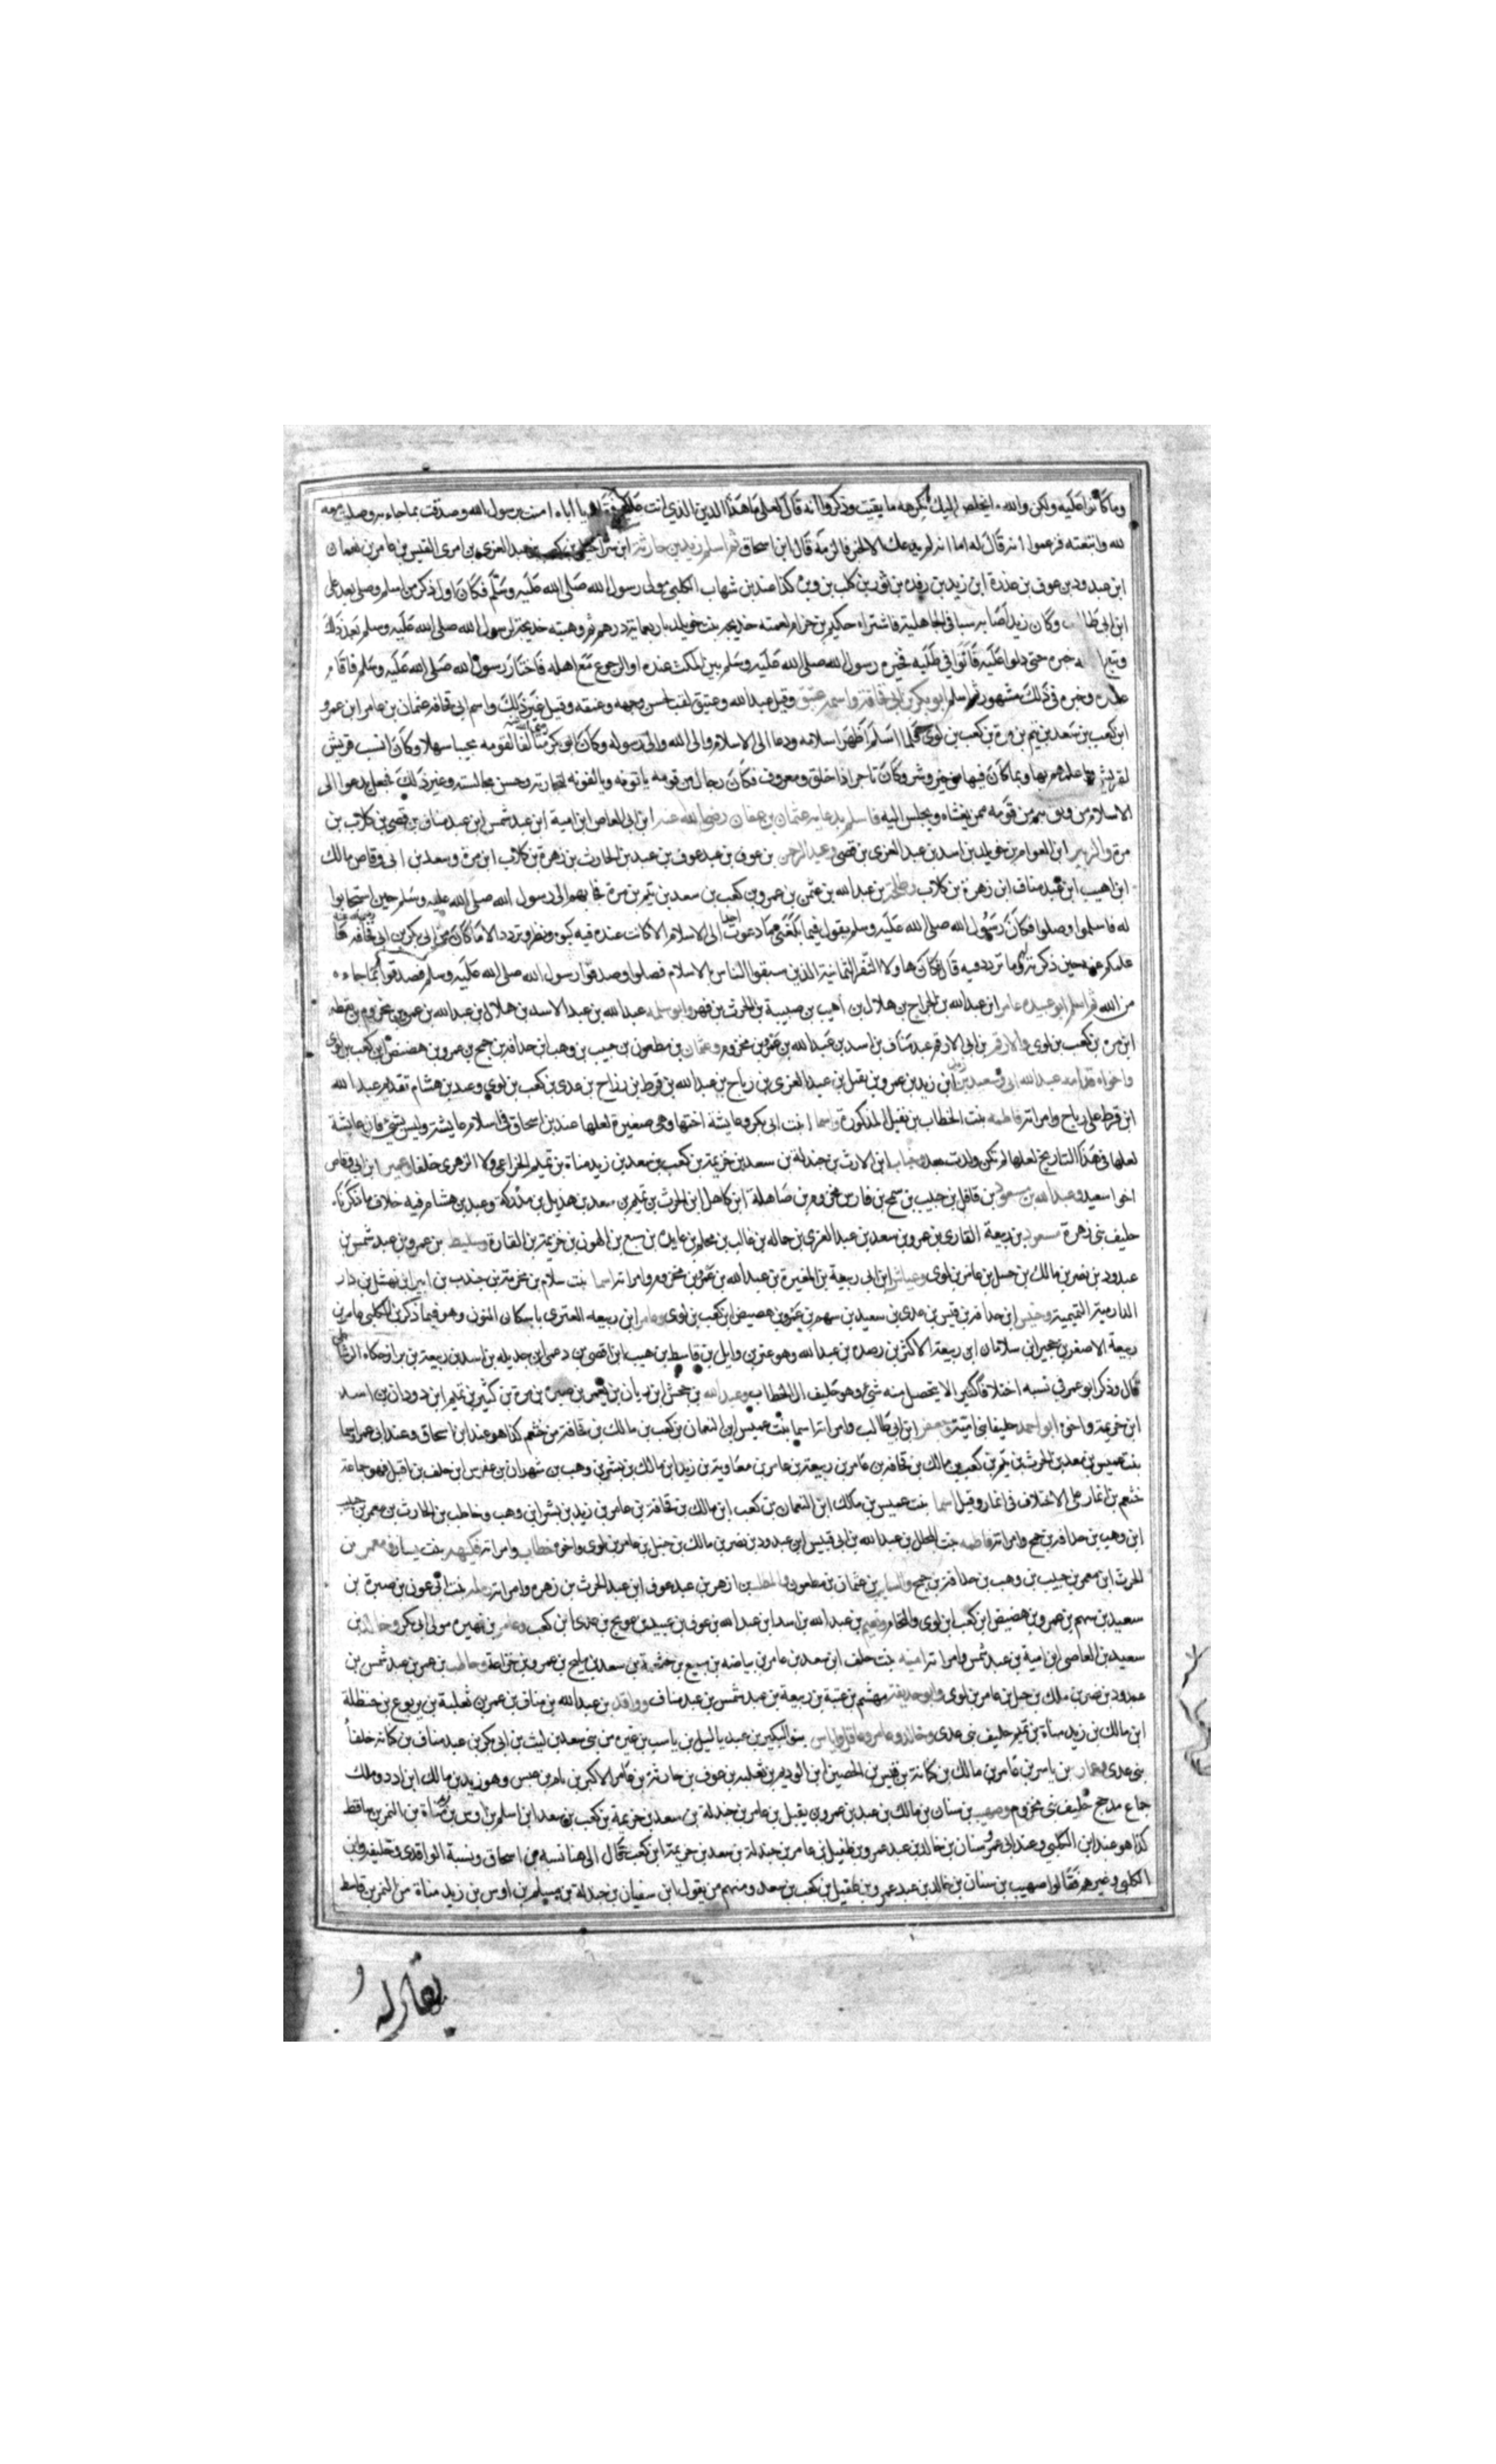 وما كانوا عليه ولكن والله لا يخلص اليك شئ تكرهه ما بقيت وذكروا انه قال لعلي ما هذا الدين الذي انت عليه فقال يا اباه امنت برسول الله وصدقت بما جاء به وصليت معه
لله واتبعته فزعموا انه قال له اما انه لم يدعك الا لخير فالزمه قال ابن اسحاق ثم اسلم زيد بن حارثة ابن شراحيل بن كعب بن عبد العزى بن امرى القيس بن عامر بن نعمان
ابن عبدود بن عوف بن عذرة ابن زيد بن رفده بن ثور بن كلب بن وبره كذا عند بن شهاب الكلبي مولى رسول الله صلى الله عليه وسلم فكان اول ذكر من اسلم وصلى بعد علي
ابن ابي طالب وكان زيد اصابه سبا في الجاهلية فاشتراه حكيم بن حزام لعمته خديجة بنت خويلد باربعماية درهم ثم وهبته خديجة لرسول الله صلى الله عليه وسلم بعد ذلك
خبره حتى دلوا عليه فاتوا في طلبه فخيره رسول الله صلى الله عليه وسلم بين المكث عنده او الرجوع مع اهله فاختار رسول الله صلى الله عليه وسلم فاقام
عنده وخبره في ذلك مشهور ثم اسلم ابو بكر بن ابي قحافة واسمه عتيق وقيل عبد الله وعتيق لقب لحسن وجهه وعتقه وقيل غير ذلك واسم ابي قحافة عثمان بن عامر ابن عمرو
ابن كعب بن سعد بن تيم بن مرة بن كعب بن لوى فلما اسلم اظهر اسلامه ودعا الى الاسلام والى الله والى رسوله وكان ابو بكر رضي الله عنه مالفا لقومه محببا سهلا وكان انسب قريش
لقريش واعلمهم بها وبما كان فيها من خير وشر وكان تاجرا ذا خلق ومعروف فكان رجال من قومه ياتونه ويالفونه لتجارته وحسن مجالسته وغير ذلك فجعل يدعوا الى
الاسلام من وثق بهم من قومه ممن يغشاه ويجلس اليه فاسلم بدعايه عثمان بن عفان رضي الله عنه ابن ابي العاص ابن امية ابن عبد شمس ابن عبد مناف بن قصي بن كلاب بن
مرة والزبير ابن العوام بن خويلد بن اسد بن عبد العزى بن قصي وعبد الرحمن بن عوف بن عبد عوف بن عبد بن الحارث بن زهرة بن كلاب ابن مرة وسعد بن ابي وقاص مالك
ابن اهيب ابن عبد مناف ابن زهرة بن كلاب وطلحة بن عبد الله بن عثمن بن عمرو بن كعب بن سعد بن تيم بن مرة فجا بهم الى رسول الله صلى الله عليه وسلم حين استجابوا
له فاسلموا وصلوا فكان رسول الله صلى الله عليه وسلم يقول فيما بلغني ما دعوت احدا الى الاسلام الا كانت عنده فيه كبوه ونظر وتردد الا ما كان من ابي بكر بن ابي قحافة ما
عكم عنه حين ذكرته له وما تردد فيه قال فكان هاولا النفر الثمانية الذين سبقوا الناس بالاسلام فصلوا وصدقوا رسول الله صلى الله عليه وسلم فصدقوا بما جاءه
من الله ثم اسلم ابو عبيده عامر ابن عبد الله بن الجراح بن هلال بن اهيب بن ضبيبة بن الحرث بن فهر وابو سلمه عبد الله بن عبد الاسد بن هلال بن عبد الله بن عمر بن مخزوم بن يقظه
ابن مره بن كعب بن لوى والارقم بن ابي الارقم عبد مناف بن اسد بن عبد الله بن عمرو بن مخزوم وعثمان بن مظعون بن حبيب بن وهب ابن حذافه بن جمح بن عمرو بن هصيص ابن كعب بن لوى
واخواه قدامه عبد الله ابن وسعيد بن ابن زيد بن عمرو بن نفيل بن عبد العزى بن رياح بن عبد الله بن قرط بن رزاح بن عدى بن كعب بن لوى وعند بن هشام تقديم عبد الله
ابن قرط على رياح وامراته فاطمه بنت الخطاب بن نفيل المذكورة واسما ابنت ابي بكر وعايشة اختها وهي صغيرة لعلها عند بن اسحاق في اسلام عايشة وليس بشئ فان عايشة
لعلها في هذا التاريخ لعلها لم تكن ولدت بعد وخباب ابن الارت بن جندلة بن سعد بن خزيمة بن كعب بن سعد بن زيد مناة بن تميم الخزاعي ولاء الزهرى حلفا وعمير ابن ابي وقاص
اخوا سعيد وعبد الله بن مسعود بن قافل بن حبيب بن شمخ بن فار بن مخزوم بن صاهلة ابن كاهل ابن الحرث بن تميم بن سعد بن هذيل بن مدركة وعند بن هشام فيه خلاف ما ذكرناه
حليف بني زهرة مسعود بن ربيعة القارى بن عمرو بن سعد بن عبد العزى بن حماله بن غالب بن محلم بن عايذه بن سبع بن الهون بن خزيمة بن القارة وسليط بن عمرو بن عبد شمس بن
عبدود بن نصر بن مالك بن حسل ابن عامر بن لوى وعياش ابن ابي ربيعة بن المغيرة بن عبد الله بن عمرو بن مخزوم وامراته اسما بنت سلام بن مخربة بن جندب بن ابير ابن نهشل بن دار
الدارمية التميمية وخنيس ابن حذافة بن قيس بن عدى بن سعيد بن سهم بن عمرو بن هصيص ابن كعب بن لوى وعامر ابن ربيعه العنزى باسكان النون وهو فيما ذكر بن الكلبي عامر بن
ربيعة الاصغر بن حجير ابن سلامان ابن ربيعة الاكبر بن رصده بن عبد الله وهو عنز بن وايل بن قاسط بن هيب ابن اقصى بن دعمى ابن جديله بن اسد بن ربيعة بن نزار حكاه الرشاطي
قال وذكر ابو عمر في نسبه اختلافا كثيرا لا يتحصل منه شئ وهو حليف ال الخطاب وعبد الله بن جحش ابن رياب بن يعمر بن صبره بن مرة بن كثير بن غنم ابن دودان بن اسد
ابن خزيمة واخوه ابو احمد حليفا بني امية وجعفر ابن ابي طالب وامراته اسما بنت عميس ابن النعمان بن كعب بن مالك بن قحافة من خثعم كذا هو عند ابن اسحاق وعند ابي عمر اسما
بنت عميس بن معد بن الحرث بن تيم بن كعب بن مالك بن قحافه بن عامر بن ربيعة بن عامر بن معاوية بن زيد ابن مالك بن بشر بن وهب بن شهران بن عفرس ابن خلف بن اقبل فهو جماعة
خثعم بن انمار على الاختلاف في انمار وقيل اسما بنت عميس بن مالك ابن النعمان بن كعب ابن مالك بن قحافة بن عامر بن زيد بن بشر ابن وهب وحاطب بن الحارث بن معمر بن حبيب
ابن وهب بن حذافه بن جمح وامراته فاطمه بنت المجلل بن عبد الله بن ابي قيس ابن عبدود بن نصر بن مالك بن حسل بن عامر بن لوى واخوه خطاب وامراته فكيهه بنت يسار ومعمر بن
الحرث ابن معمر بن حبيب بن وهب بن حذافة بن جمح والسايب بن عثمان بن مظعون والمطلب بن ازهر بن عبد عوف ابن عبد الحرث بن زهره وامراته رمله بنت ابي عوف بن صبيرة بن
سعيد بن سهم بن عمرو بن هصيص ابن كعب ابن لوى والنحام ونعيم بن عبد الله بن اسد ابن عبد الله بن عوف ابن عبيد بن عويج بن عدى ابن كعب وعامر بن فهيره مولى ابي بكر وخالد بن
سعيد بن العاصي ابن امية بن عبد شمس وامراته امينه بنت خلف ابن سعد بن عامر بن بياضه بن سبيع بن خثعمة بن سعد بن مليح بن عمرو بن خزاعة وحاطب بن عمر بن عبد شمس بن
عبدود بن نصر بن ملك بن حسل بن عامر بن لوى وابو حذيفة مهشم بن عتبة بن ربيعة بن عبد شمس بن عبد مناف وواقد بن عبد الله بن مناف بن عمر بن ثعلبة بن يربوع بن حنظلة
ابن مالك بن زيد مناة بن تميم حليف بني عدى وخالد وعامر وعاقل واياس بنو البكير بن عبد ياليل بن ناسب بن غيره من بني سعد بن ليث بن ابي بكر بن عبد مناف بن كنانة حلفا
بني عدى وعمار بن ياسر بن عامر بن مالك بن كنانة بن قيس بن الحصين ابن الوديم بن ثعلبه بن عوف بن حارثة بن عامر الاكبر بن يام بن عبس وهو زيد بن مالك ابن ادد وملك
جماع مذحج حليف بني مخزوم وصهيب بن سنان بن مالك بن عبد بن عمرو بن عقيل بن عامر بن جندلة بن سعد بن خزيمة بن كعب بن سعد ابن اسلم بن اوس بن زيد مناة بن النمر بن قاسط
كذا هو عند ابن الكلبي وعند ابي عمر وسنان بن خالد بن عبد عمرو بن طفيل ابن عامر بن جندلة بن سعد بن خزيمة ابن كعب قال الى هنا نسبه بن اسحاق ونسبة الواقدى وخليفة وابن
الكلبي وغيرهم فقالوا صهيب بن سنان بن خالد بن عبد عمرو بن طفيل بن كعب بن سعد ومنهم من يقول ابن سفيان بن جندلة بن مسلم بن اوس بن زيد مناة من النمر بن قاسط
يقال له